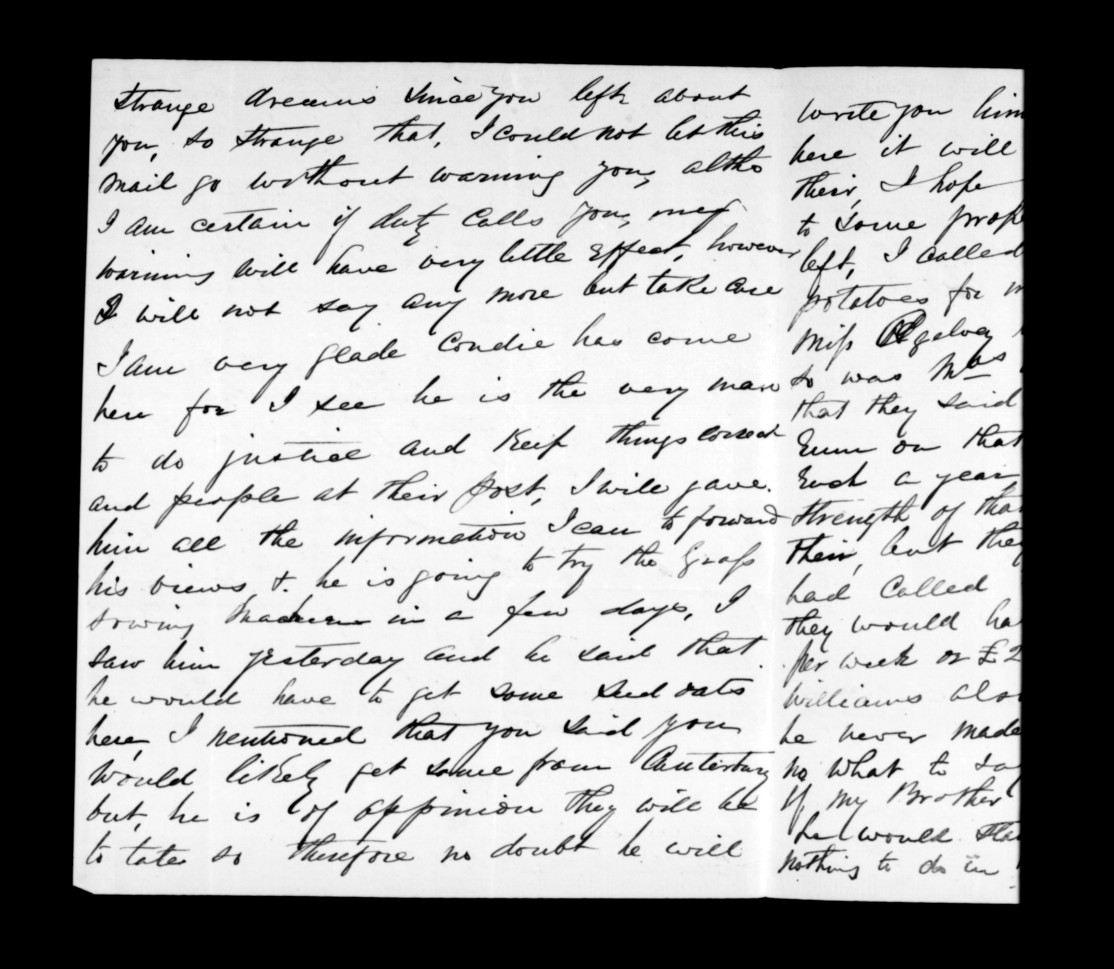 strange dreams since you left about
you, so strange that, I could not let this
mail go without warning you, altho
I am certain if duty calls you, my
warning will have very little effect, however
I will not say any more but take care
I am very glade Condie has come
here for I see he is the very man
to do justice and Keep things correct
and people at their post, I will gave
him all the information I can to forward
his views &. he is going to try the Grass
sowing Machine in a few days, I
saw him yesterday and he said that
he would have to get some seed oats
here, I mentioned that you said you
would likely get some from Canterbury
but, he is of oppinion they will be
to late so therefore no doubt he will
write you him
here it will
their, I hope
to some prope
left, I called
potatoes for
Miss
so was Mrs
that they said
Even on that
Each a year
strength of tha
their, but they
had called
they would ha
per week or £2
Williams also
he never made
no what to say
If my Brother
he would sta
nothing to do in